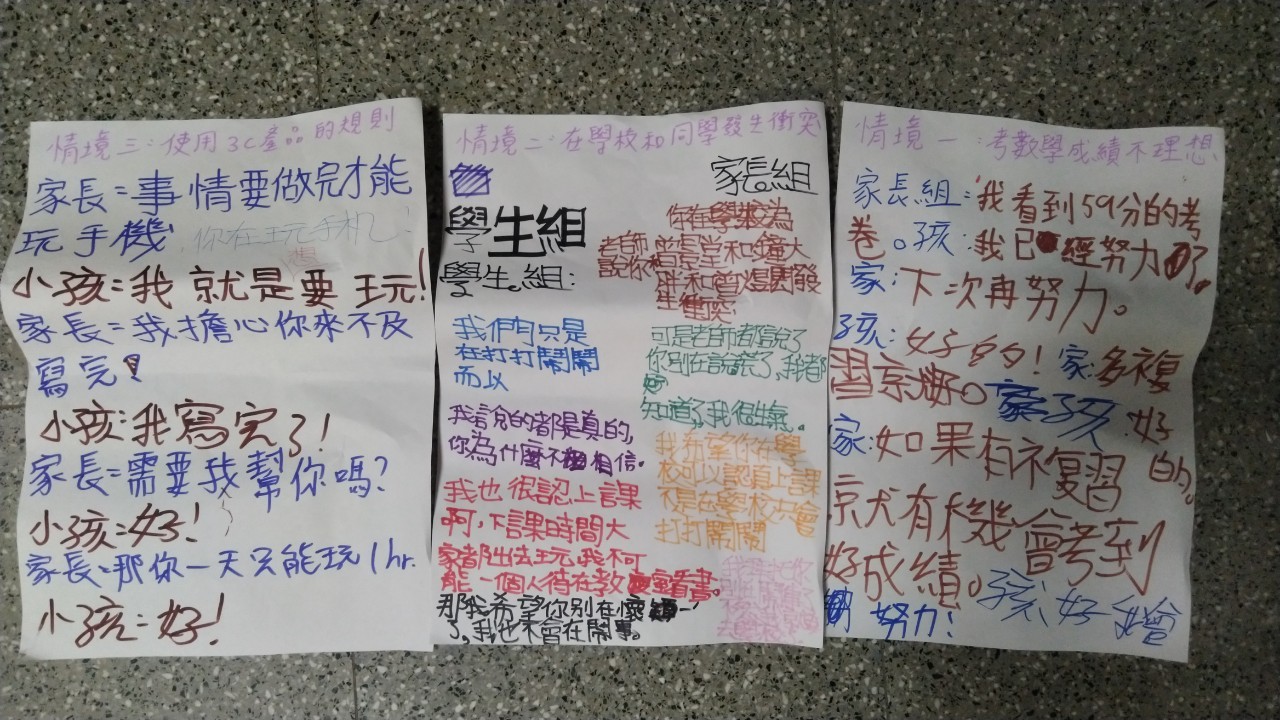 情境三：使用3C產品的規則
家長=事情要做完才能
玩手機 你在玩手机！
小孩=我就是要玩！
家長=我擔心你來不及
寫完！
小孩:我寫完了！
家長=需要我幫你嗎?
小孩=好！
家長=那你一天只能玩1hr.
小孩=好！
情境二：在學校和同學發生衝突
學生組
學生。組:
我們只是
在打打鬧鬧
而以
我說的都是真的,
你為什麼不相信。
我也很認上課
啊,下課時間大
家都出去玩,我不可
能一個人待在教室看書。
那我希望你別在懷
了,我也不會在鬧事。
家長組
你在學校為
老師
說你
和
大
胖和曾
發
生衝突
可是老師都說了
你別在說謊了,我都
知道了,我很生氣。
我希望你在學
校可以認真上課
不是在學校只會
打打鬧鬧
情境一：考數學成績不理想
家長組:我看到59分的考
卷。孩:我已經努力了。
家:下次再努力。
孩:好的！家:多複
習就好。孩:好的。
家:如果有複習
就有機會考到
好成績。孩:好我會
努力！